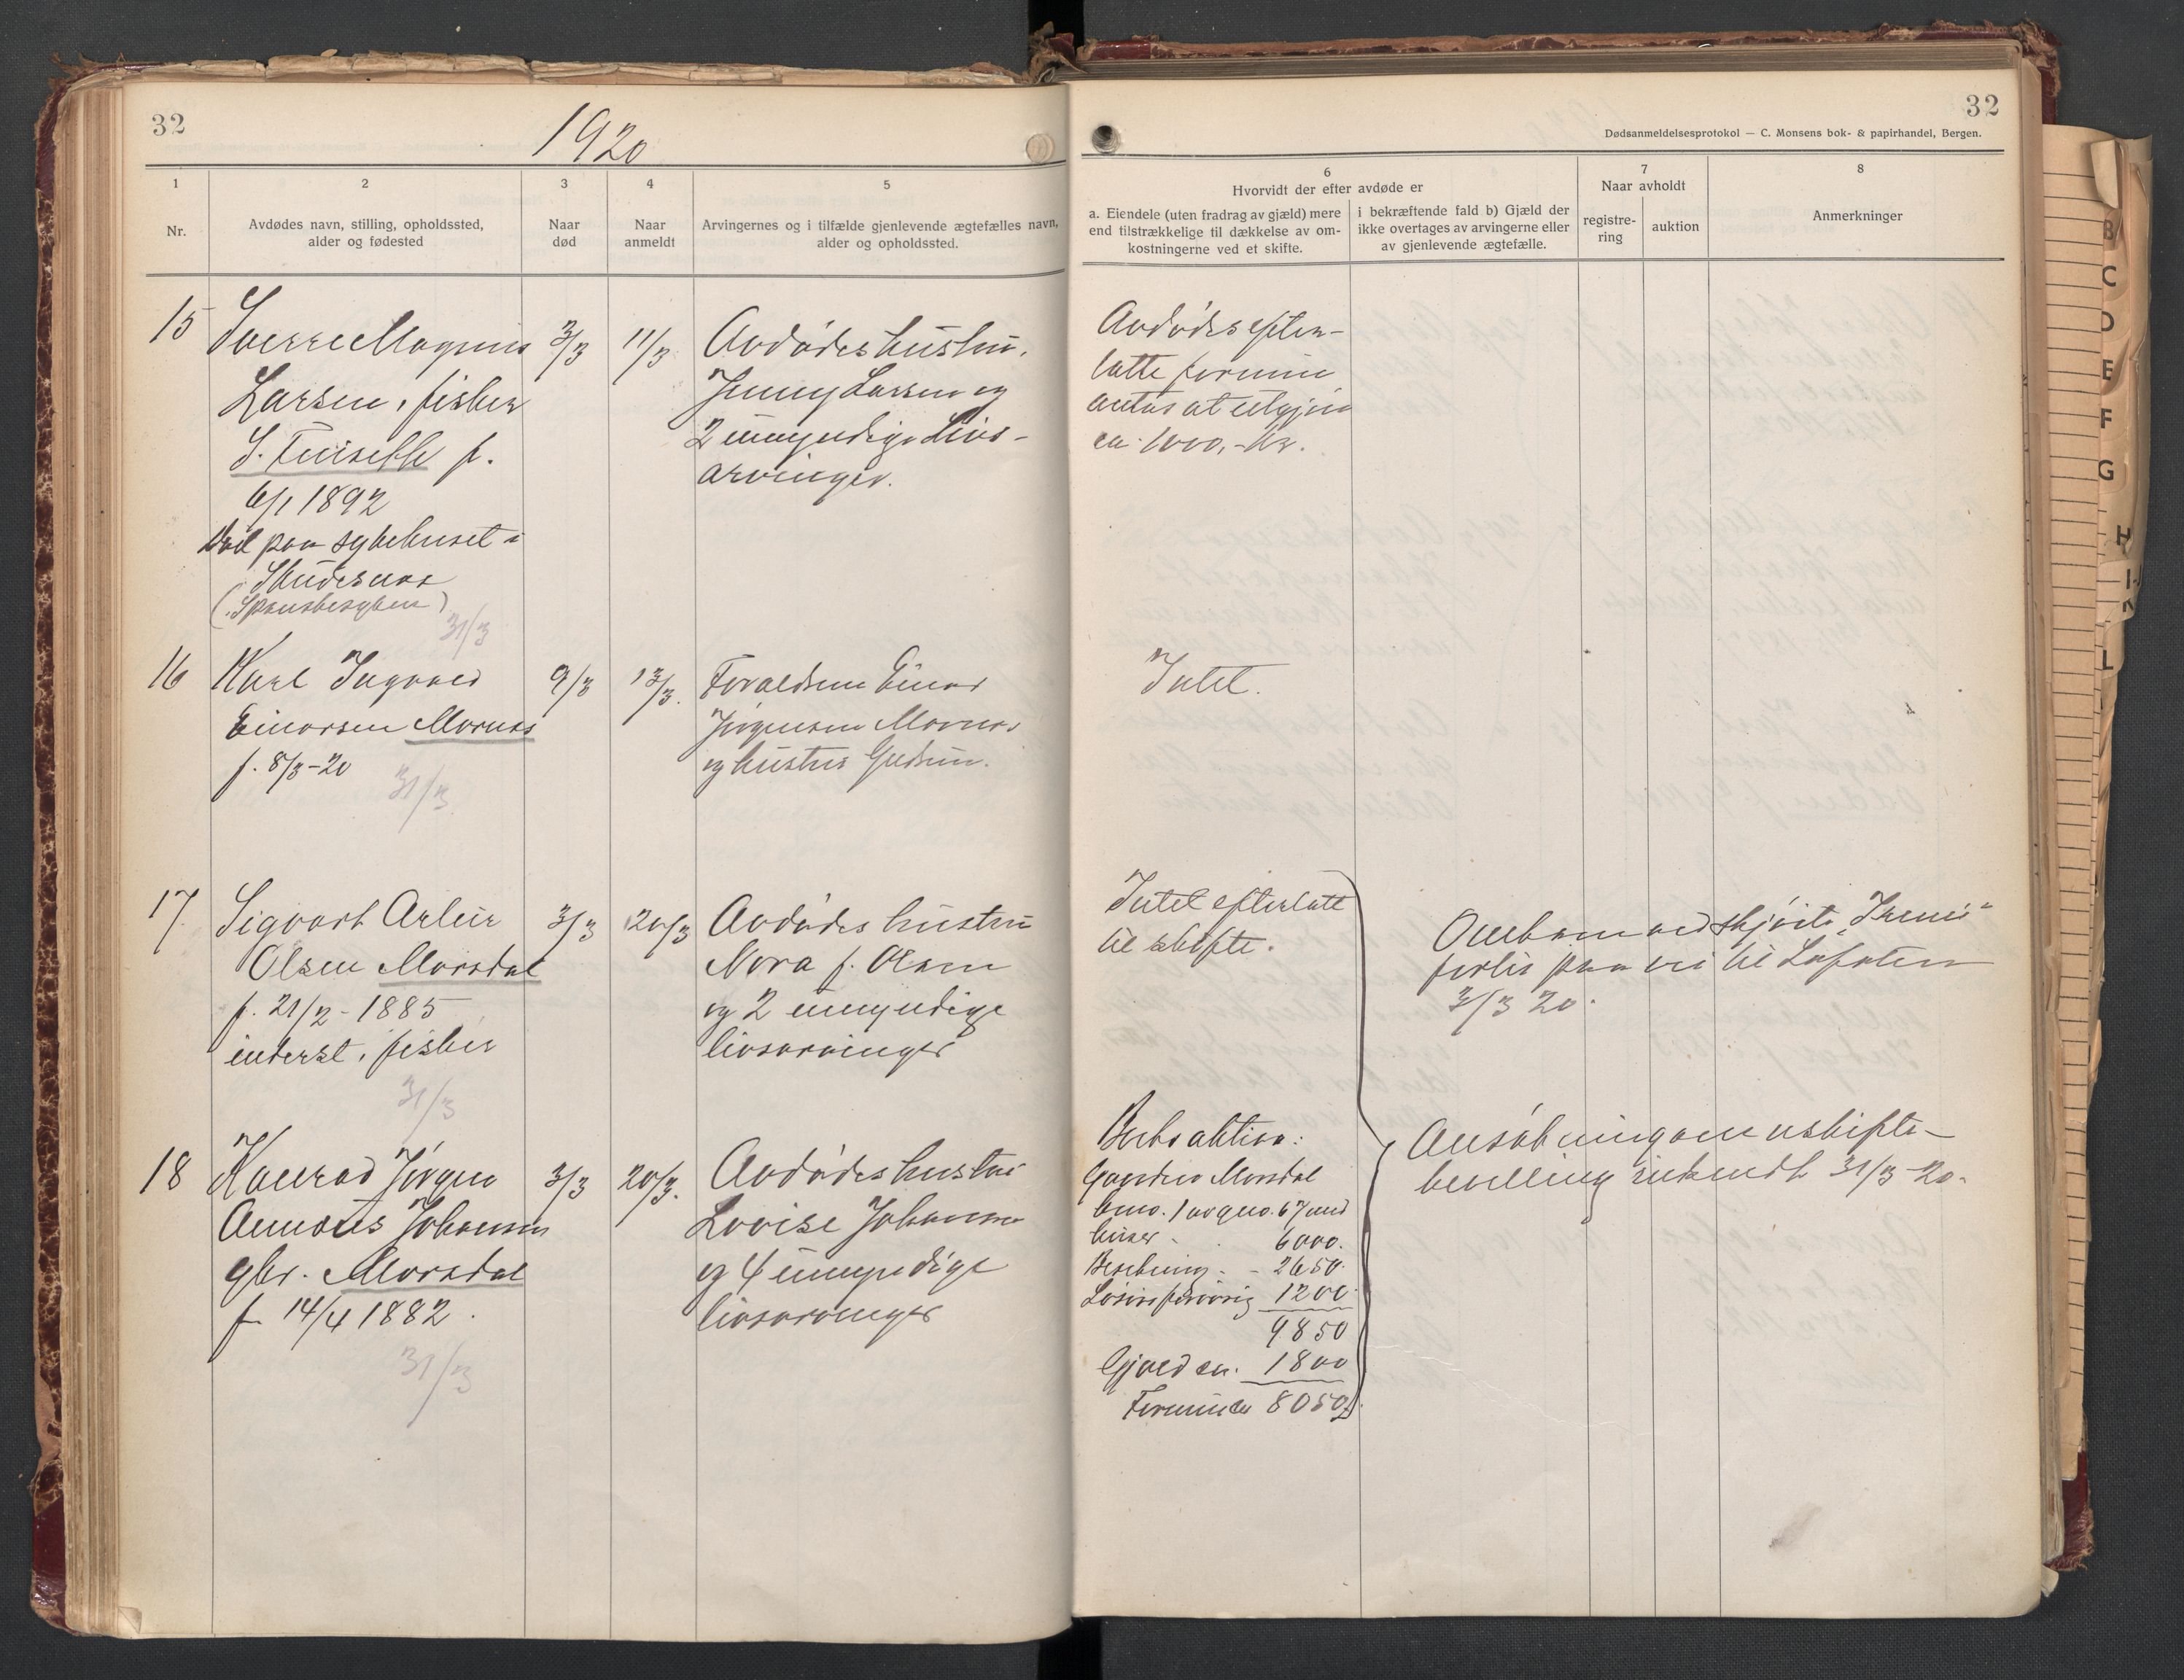 32
1920
1
2
3
4
5
Nr.
Avdødes navn, stilling, opholdssted,
alder og fødested
Naar
død
Naar
anmeldt
Arvingernes og i tilfælde gjenlevende ægtefælles navn,
alder og opholdssted.
15
Sverre Magnus
Larsen, fisker
f.
6/1 1892
Død paa sykehuset i
Skudesnes
(Spanskesyken)
31/3
3/3
11/3
Avdødes hustru.
Jenny Larsen og
2 umyndige Livs-
arvinger.
16
Karl Ingvald
Einarsen Mornes
f. 8/3-20
31/3
9/3
13/3.
Forældrene Einar
Jørgensen Mornes
og hustru Gudrun.
17
Sigvart Artur
Olsen Morsdal
f. 21/2-1885
inderst, fisker
31/3
3/3
20/3
Avdødes hustru
Nora f. Olsen
og 2 umyndige
livsarvinger
18
Konrad Jørgen
Johansen
gbr. Morsdal
f. 14/4 1882.
31/3
3/3
20/3.
Avdødes hustru
Lovise Johansen
og 4 umyndige
livsarvinger
32
Dødsanmeldelsesprotokol — C. Monsens bok- & papirhandel, Bergen.
6
Hvorvidt der efter avdøde er
a. Eiendele (uten fradrag av gjæld) mere
end tilstrækkelige til dækkelse av om-
kostningerne ved et skifte.
i bekræftende fald b) Gjæld der
ikke overtages av arvingerne eller
av gjenlevende ægtefælle.
7
Naar avholdt
registre-
ring
auktion
8
Anmerkninger
Avdødes efter-
latte formue
antas at utgjøre
ca. 1000,- kr.
Intet.
Intet efterlatt
til skifte.
Omkom ved skjøite
forlis paa vei til Lofoten
3/3 20.
Boets aktiva:
Gaarden Morsdal
bno. 1 av gno. 67 med
huser - 6000.
Besetning - - 2650.
Løsøre forøvrig 1200.
9850
Gjæld ca. 1800
Formue ca 8050
Ansøkning om uskifte-
bevilling indsendt 31/3-20.
B
C
D
E
F
G
H
I
K
L